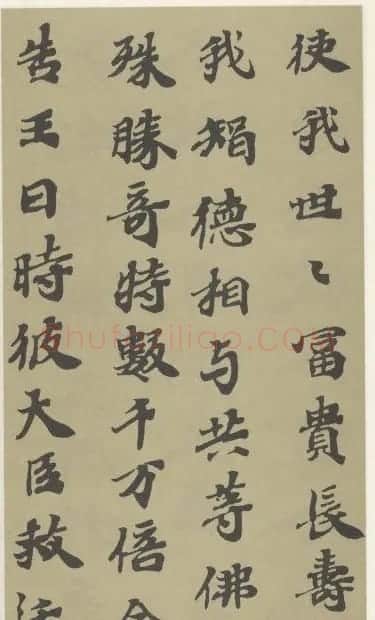 使我世〻冨貴長壽
我智德相与共等佛
殊勝奇特數千万倍
告王曰時彼大臣救